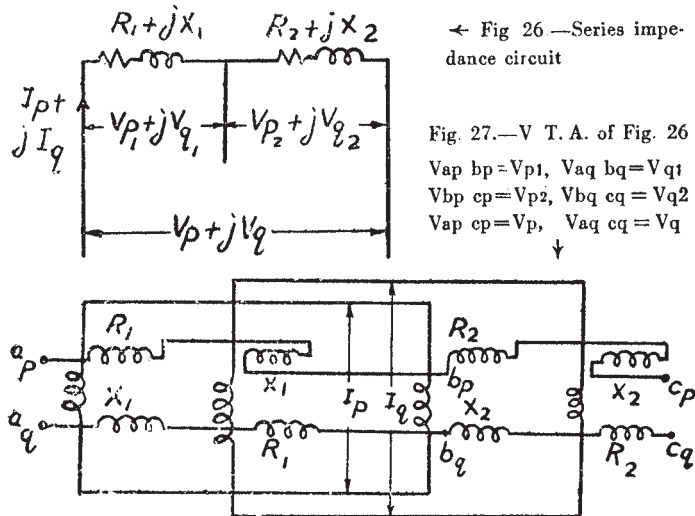 R₁+jX₁
R₂+jX₂
← Fig 26.—Series impe-
dance circuit
Ip+
jIq
Vp₁+jVq₁
Vp₂+jVq₂
Vp+jVq
Fig. 27.—V T. A. of Fig. 26
Vap bp=Vp1, Vaq bq=Vq1
Vbp cp=Vp2, Vbq cq=Vq2
Vap cp=Vp, Vaq cq=Vq
R₁
R₂
ap
X₁
Ip
Iq
bp
X₂
cp
aq
X₁
R₁
bq
X₂
R₂
cq